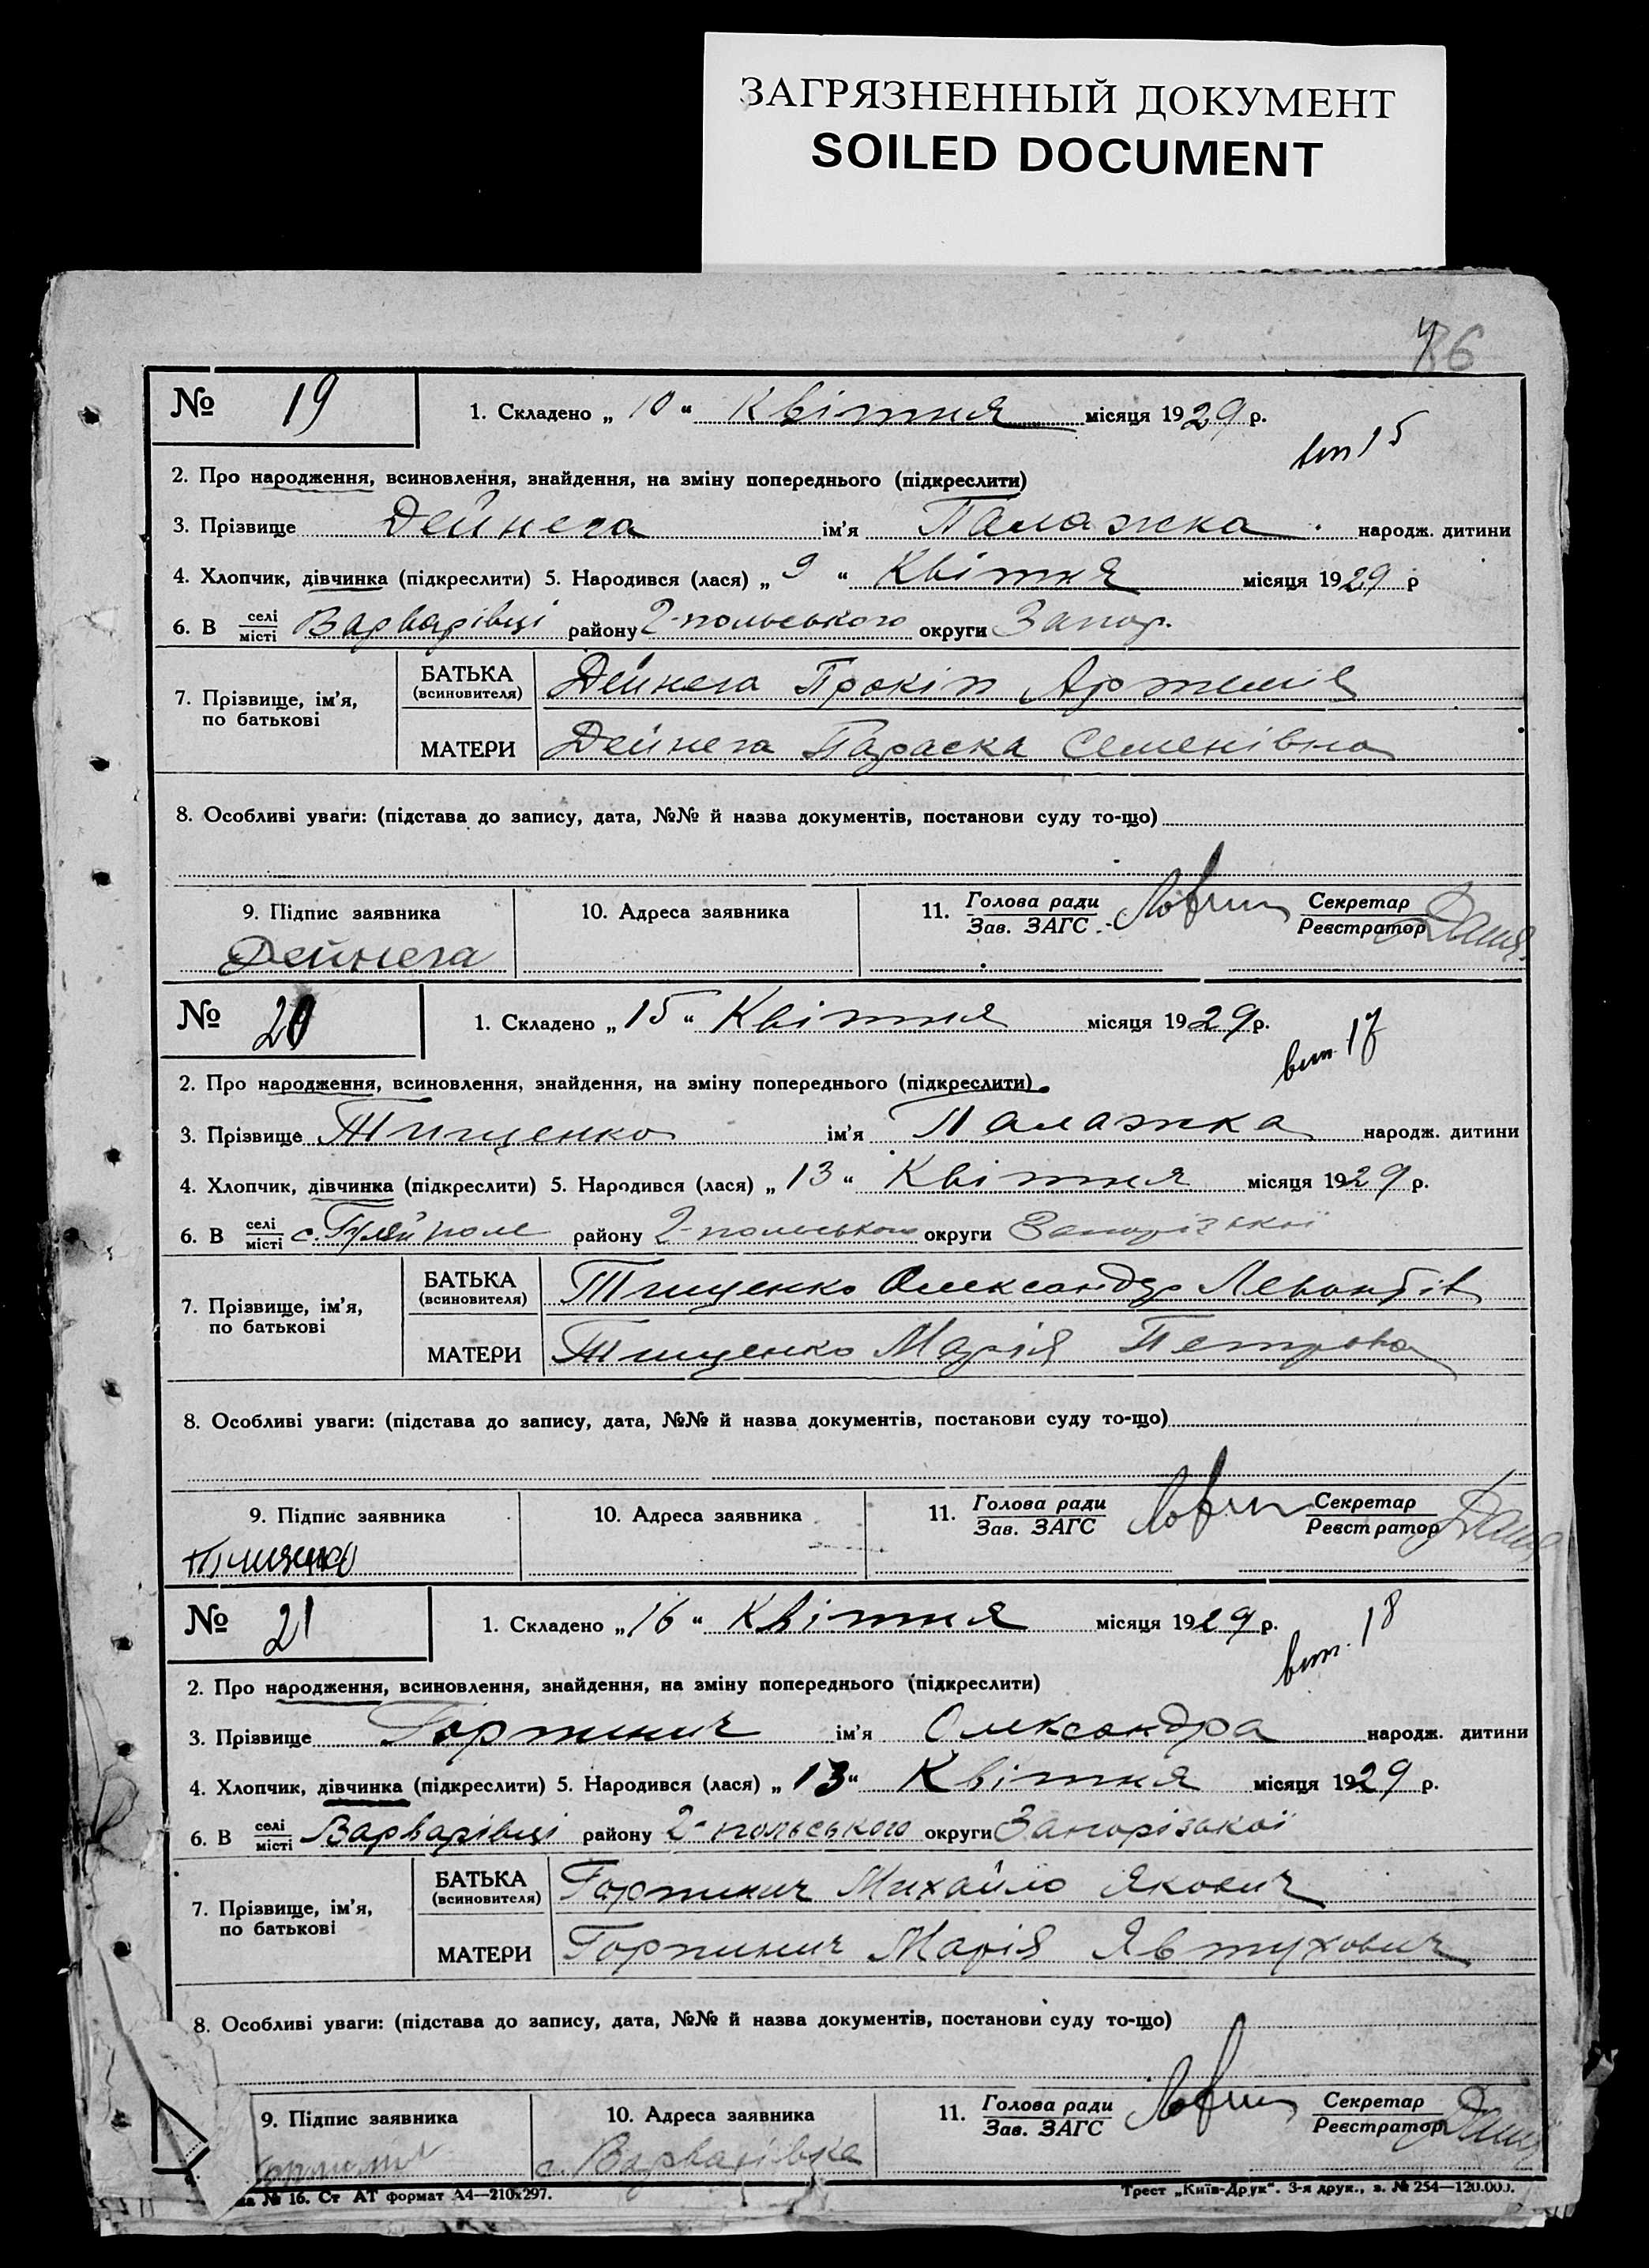 ЗАГРЯЗНЕННЫЙ ДОКУМЕНТ
SOILED DOCUMENT
№ 19
1. Складено „ 10 “ Квітня місяця 1929 р.
вип 15
2. Про народження, всиновлення, знайдення, на зміну попереднього (підкреслити)
3. Прізвище Дейнега ім’я Палажка народж. дитини
4. Хлопчик, дівчинка (підкреслити) 5. Народився (лася) „ 9 “ Квітня місяця 1929 р
6. В селі місті Варварівці району 2-польського округи Запор.
7. Прізвище, ім’я, по батькові
БАТЬКА (всиновителя) Дейнега Прокіп Артемів
МАТЕРИ Дейнега Параска Семенівна
8. Особливі уваги: (підстава до запису, дата, №№ й назва документів, постанови суду то-що)
9. Підпис заявника
10. Адреса заявника
11. Голова ради Зав. ЗАГС
Секретар Реєстратор
Дейнега
№ 20
1. Складено „ 15 “ Квітня місяця 1929 р.
вип. 17
2. Про народження, всиновлення, знайдення, на зміну попереднього (підкреслити)
3. Прізвище Тищенко ім’я Палажка народж. дитини
4. Хлопчик, дівчинка (підкреслити) 5. Народився (лася) „ 13 “ Квітня місяця 1929 р.
6. В селі місті с. Гуляйполе району 2-польського округи Запорізької
7. Прізвище, ім’я, по батькові
БАТЬКА (всиновителя) Тищенко Олександр
МАТЕРИ Тищенко Марія Петровна
8. Особливі уваги: (підстава до запису, дата, №№ й назва документів, постанови суду то-що)
9. Підпис заявника
10. Адреса заявника
11. Голова ради Зав. ЗАГС
Секретар Реєстратор
№ 21
1. Складено „ 16 “ Квітня місяця 1929 р.
вип. 18
2. Про народження, всиновлення, знайдення, на зміну попереднього (підкреслити)
3. Прізвище Горпинич ім’я Олександра народж. дитини
4. Хлопчик, дівчинка (підкреслити) 5. Народився (лася) „ 13 “ Квітня місяця 1929 р.
6. В селі місті Варварівці району 2-польського округи Запорізької
7. Прізвище, ім’я, по батькові
БАТЬКА (всиновителя) Горпинич Михайло Якович
МАТЕРИ Горпинич Марія Явтухович
8. Особливі уваги: (підстава до запису, дата, №№ й назва документів, постанови суду то-що)
9. Підпис заявника
10. Адреса заявника
11. Голова ради Зав. ЗАГС
Секретар Реєстратор
с. Варварівка
№ 16. Ст АТ формат А4—210x297.
Трест „Київ-Друк“. 3-я друк., з. № 254—120.000.